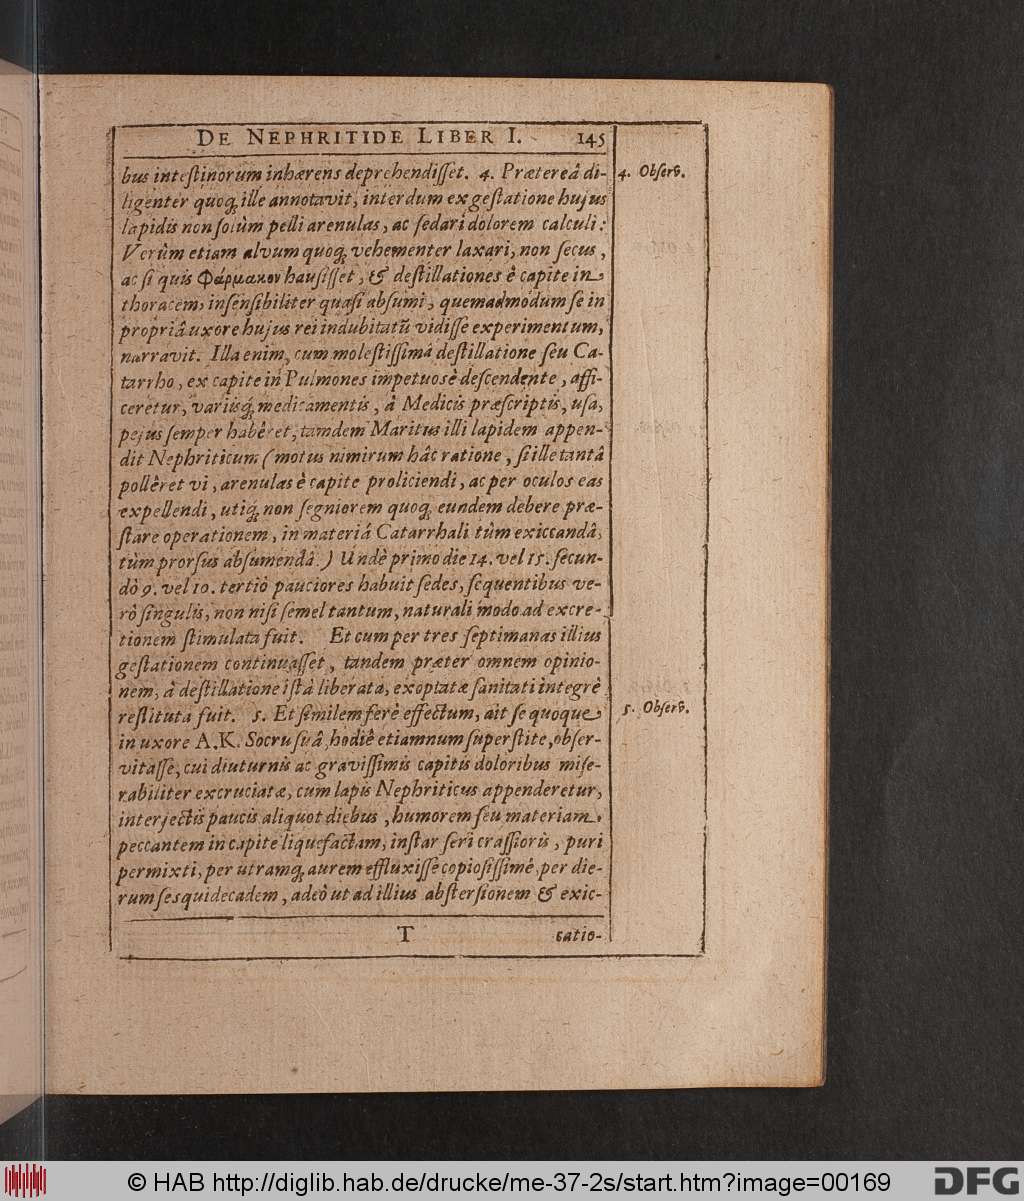 DE NEPHRITIDE LIBER I. 145
bus intestinorum inhærens deprehendisset. 4. Prætereâ di-
4. Observ.
ligenter quoq; ille annotavit, interdum ex gestatione hujus
lapidis non solùm pelli arenulas, ac sedari dolorem calculi:
Verùm etiam alvum quoq; vehementer laxari, non secus,
ac si quis Φάρμακον hausisset, & destillationes è capite in
thoracem, insensibiliter quasi absumi, quemadmodum se in
propriâ uxore hujus rei indubitatũ vidisse experimentum,
narravit. Illa enim, cum molestissimâ destillatione seu Ca-
tarrho, ex capite in Pulmones impetuosè descendente, affi-
ceretur, variisq; medicamentis, â Medicis præscriptis, usa,
pejus semper habêret, tamdem Maritus illi lapidem appen-
dit Nephriticum (motus nimirum hâc ratione, si ille tantâ
pollêret vi, arenulas è capite proliciendi, ac per oculos eas
expellendi, utiq; non segniorem quoq; eundem debere præ-
stare operationem, in materiâ Catarrhali tùm exiccandâ,
tùm prorsus absumendâ.) Undè primo die 14. vel 15. secun-
dò 9. vel 10. tertiò pauciores habuit sedes, sequentibus ve-
rò singulis, non nisi semel tantum, naturali modo ad excre-
tionem stimulata fuit. Et cum per tres septimanas illius
gestationem continuasset, tandem præter omnem opinio-
nem, â destillatione istâ liberata, exoptatæ sanitati integrè
restituta fuit. 5. Et similem ferè effectum, ait se quoque
5. Observ.
in uxore A.K. Socru suâ, hodiê etiamnum superstite, obser-
vitasse, cui diuturnis ac gravissimis capitis doloribus mise-
rabiliter excruciatæ, cum lapis Nephriticus appenderetur,
interjectis paucis aliquot diebus, humorem seu materiam
peccantem in capite liquefactam, instar seri crassioris, puri
permixti, per utramq; aurem effluxisse copiosissimê, per die-
rum sesquidecadem, adeò ut ad illius abstersionem & exic-
T catio-
© HAB http://diglib.hab.de/drucke/me-37-2s/start.htm?image=00169
DFG